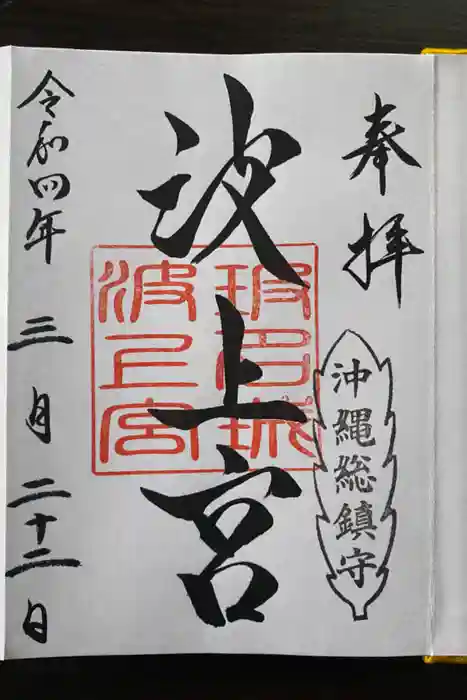 奉拝
沖縄総鎮守
波上宮
波上宮
令和四年三月二十二日